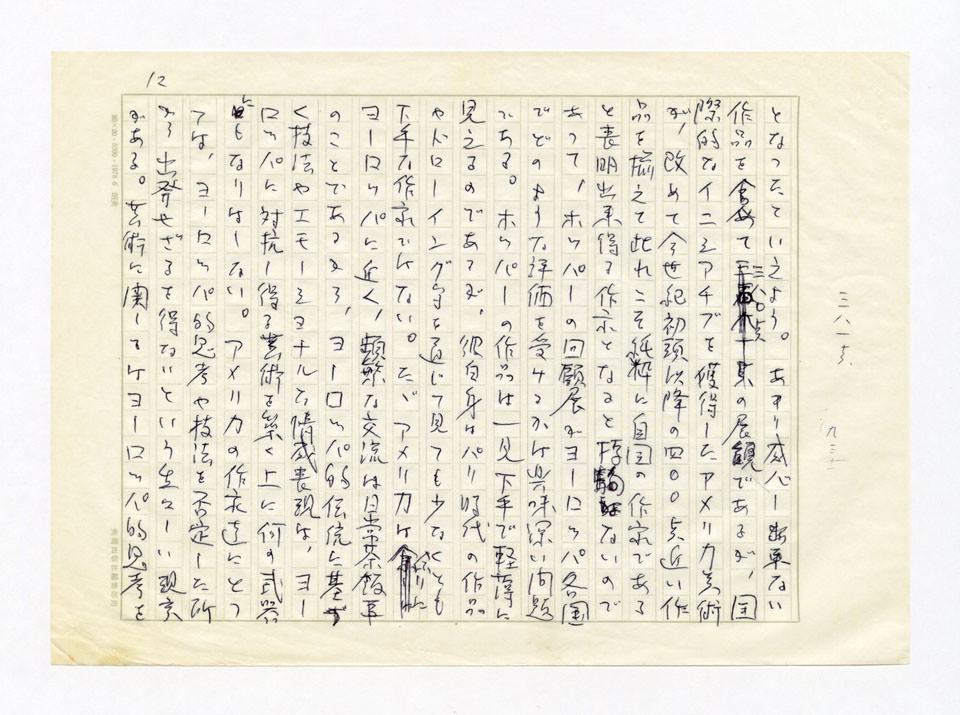 となったといえよう。あまり感心出来ない
作品を含めて三八〇点の展観であるが、国
際的なイニシアチブを獲得したアメリカ美術
が、改めて今世紀初頭以降の四〇〇点近い作
品を揃えて此れこそ純粋に自国の作家である
と表明出来得る作家となると ないので
あって、ホッパーの回顧展がヨーロッパ各国
でどのような評価を受けるかは興味深い問題
である。ホッパーの作品は一見下手で軽薄に
見えるのであるが、彼自身はパリ時代の作品
やドローイング等を通じて見ても少なくとも
下手な作家ではない。たゞアメリカは余りに
ヨーロッパに近く、頻繁な交流は日常茶飯事
のことであるから、ヨーロッパ的伝統に基ず
く技法やエモーショナルな情感表現は、ヨー
ロッパに対抗し得る芸術を築く上に何の武器
ともなりはしない。アメリカの作家達にとっ
ては、ヨーロッパ的思考や技法を否定した所
から出発せざるを得ないという生々しい現実
がある。芸術に関してはヨーロッパ的思考を
12
三八一点
20×20